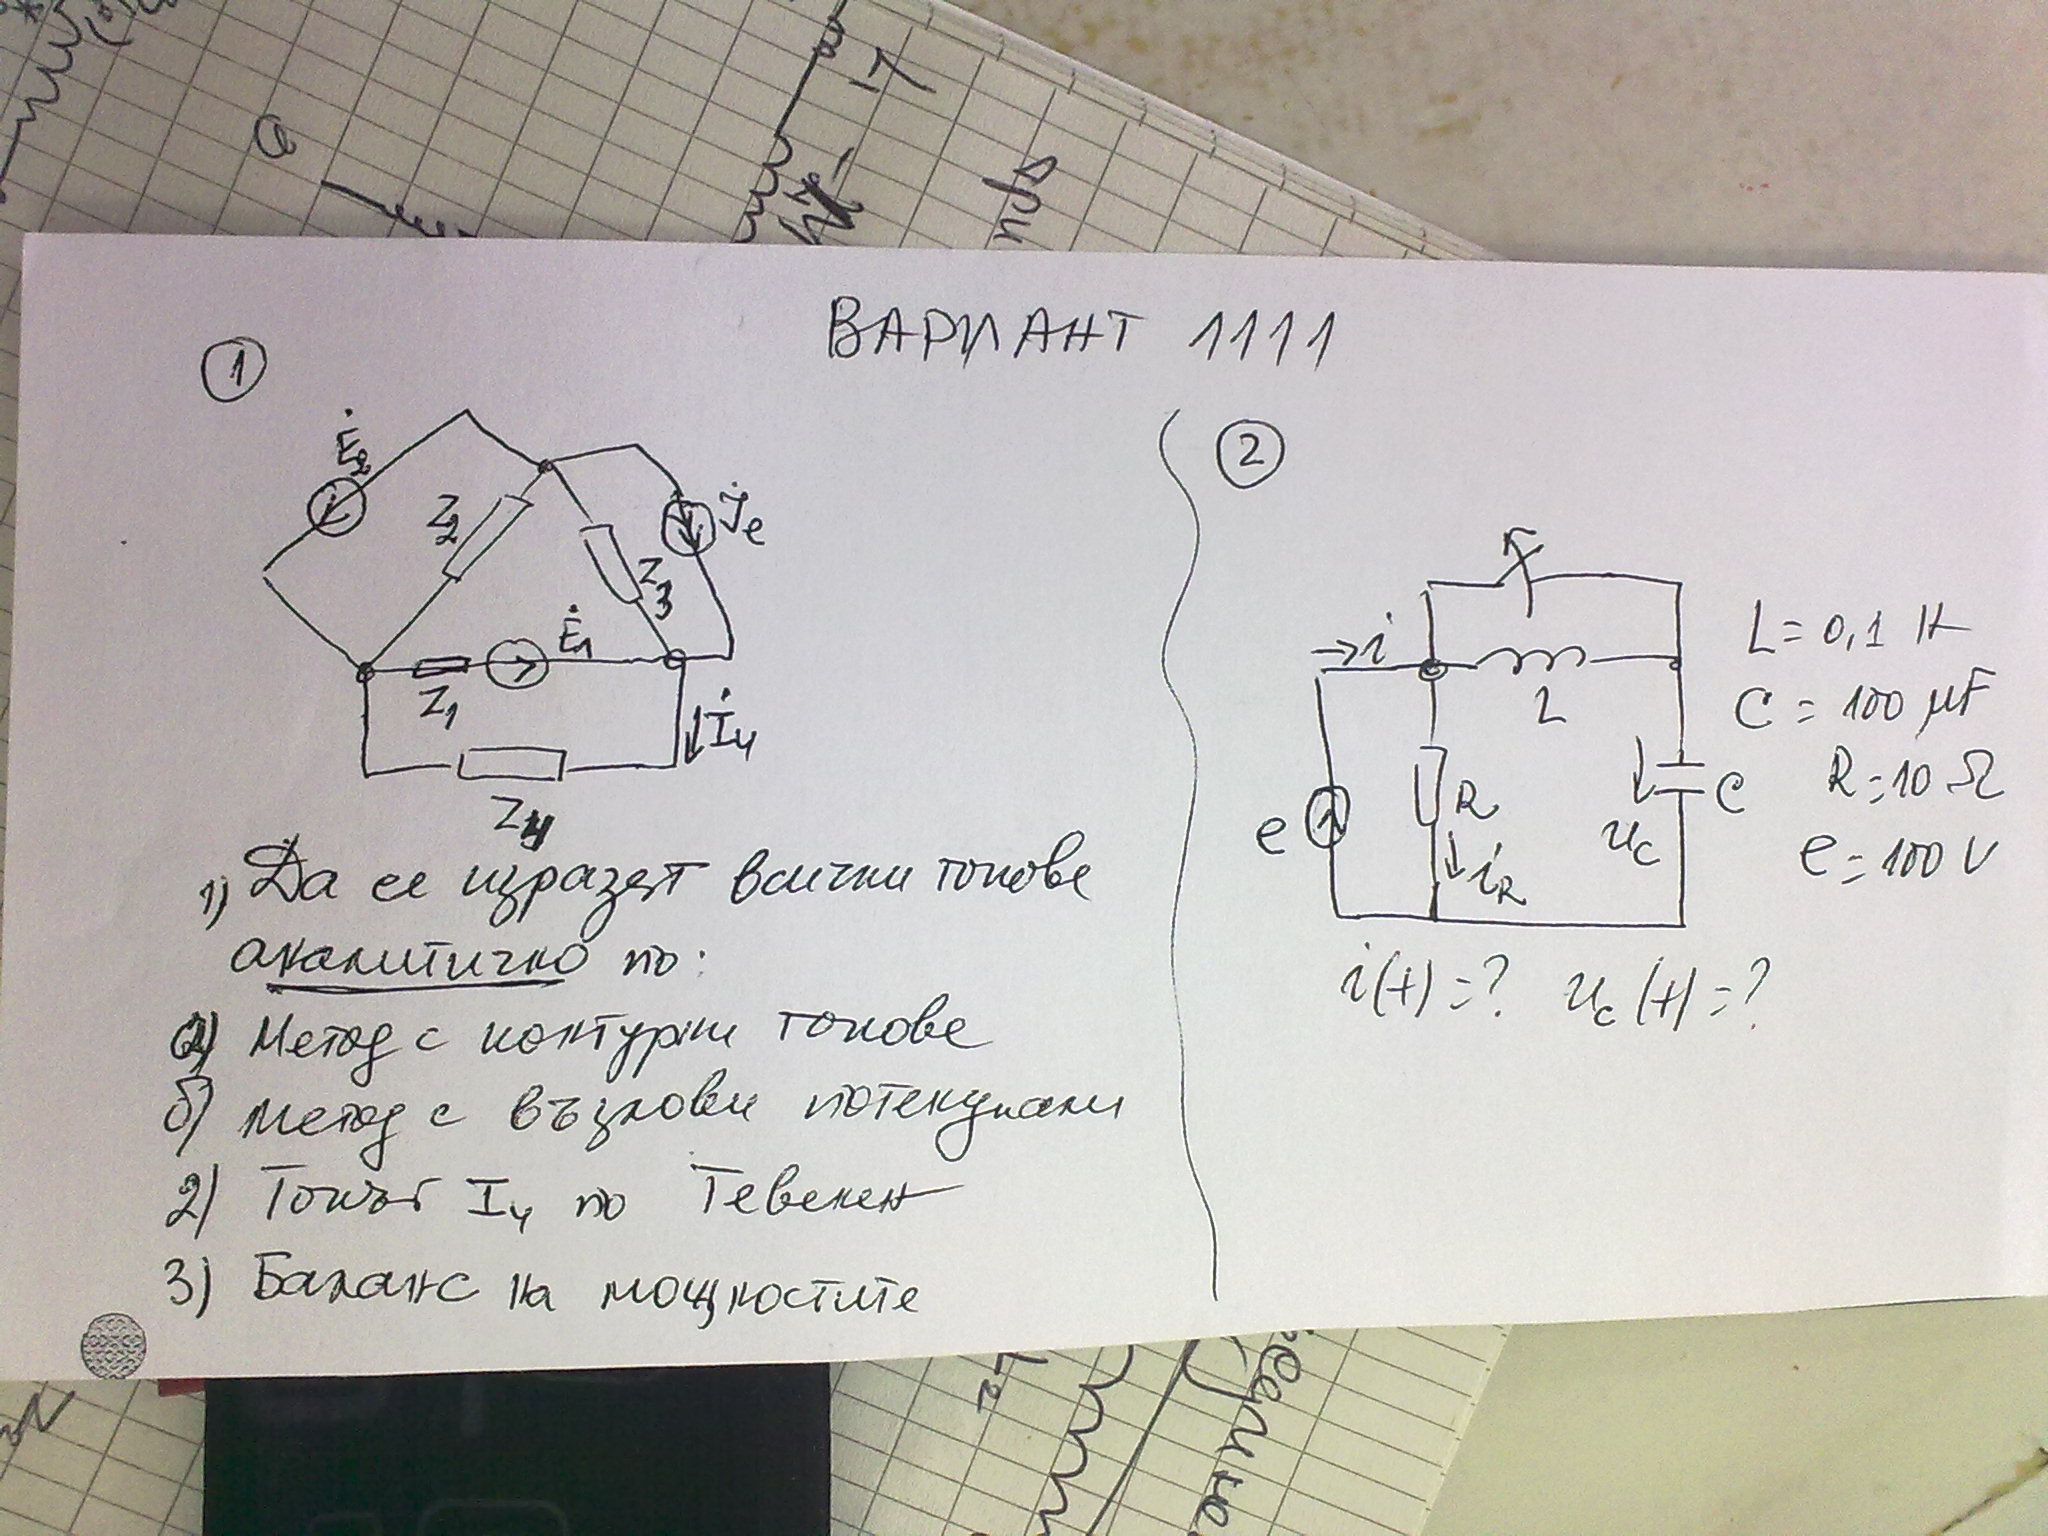 ВАРИАНТ 1111
1
Ė₂
Z₂
J̇e
Z₃
Ė₁
Z₁
İ₄
Z₄
1) Да се изразят всички токове
аналитично по:
а) Метод с контурни токове
б) Метод с възлови потенциали
2) Токът I₄ по Тевенен
3) Баланс на мощностите
2
i
L
L = 0,1 H
C = 100 μF
R = 10 Ω
e = 100 V
e
R
iR
uc
C
i(t) = ? uc(t) = ?
17